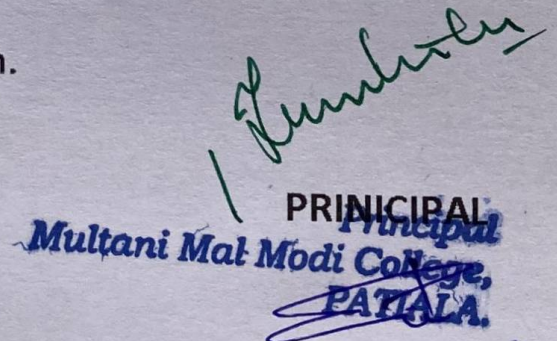 n.
PRINICIPAL
Principal
Multani Mal Modi College,
PATIALA.